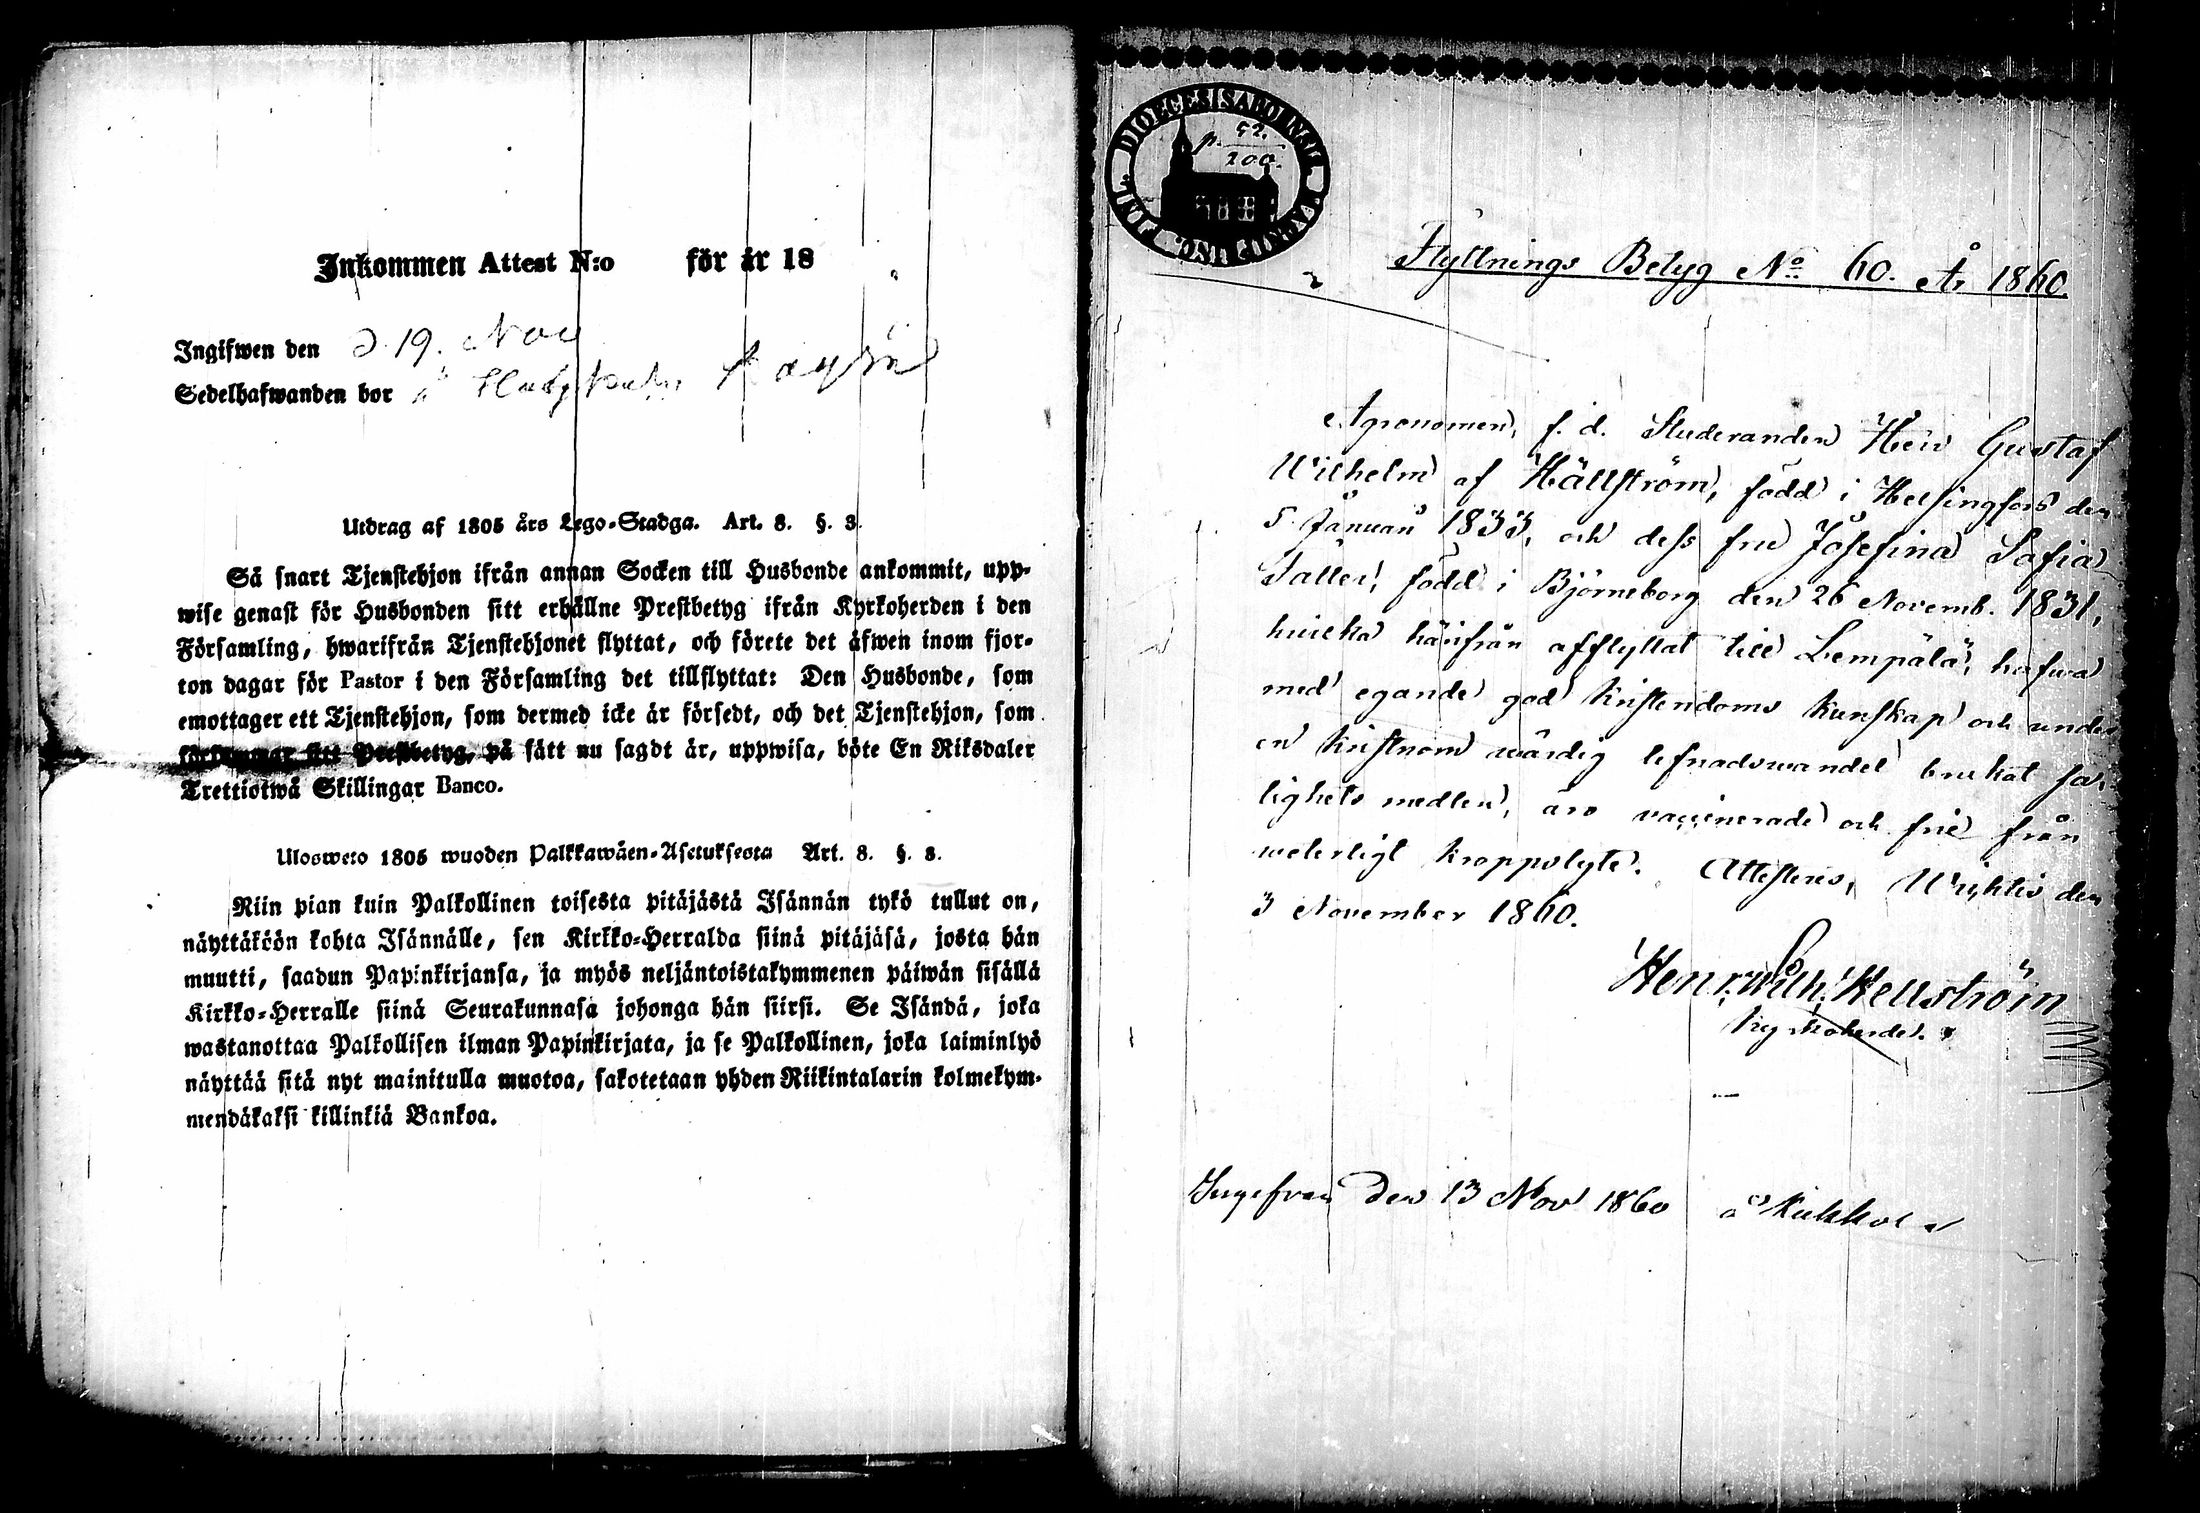 Inkommen Attest N:o för år 18
Ingifwen den d. 19. Nov
Sedelhafwanden bor å
Utdrag af 1805 års Lego-Stadga. Art. 8. §. 3.
Så snart Tjenstehjon ifrån annan Socken till Husbonde ankommit, upp-
wise genast för Husbonden sitt erhållne Prestbetyg ifrån Kyrkoherden i den
Församling, hwarifrån Tjenstehjonet flyttat, och förete det äfwen inom fjor-
ton dagar för Pastor i den Församling det tillflyttat: Den Husbonde, som
emottager ett Tjenstehjon, som dermed icke är försedt, och det Tjenstehjon, som
försummar sitt Prestbetyg, på sätt nu sagdt är, uppwisa, böte En Riksdaler
Trettiotwå Skillingar Banco.
Uloswето 1805 wuoden Palkkawäen-Asetuksesta Art. 8. §. 3.
Niin pian kuin Palkollinen toisesta pitäjästä Isännän tykö tullut on,
näyttäköön kohta Isännälle, sen Kirkko-Herralda siinä pitäjäsä, josta hän
muutti, saadun Papinkirjansa, ja myös neljäntoistakymmenen päiwän sisällä
Kirkko-Herralle siinä Seurakunnasa johonga hän siirsi. Se Isändä, joka
wastanottaa Palkollisen ilman Papinkirjata, ja se Palkollinen, joka laiminlyö
näyttää sitä nyt mainitulla muotoa, sakotetaan yhden Riikintalarin kolmekym-
mendäkaksi killinkiä Bankoa.
DIOECESIS ABOENSIS
p. 52.
200.
Flyttnings Betyg No 60. År 1860.
Agronomen, f. d. Studeranden Herr Gustaf
Wilhelm af Hällström, född i Helsingfors den
5 Januari 1833, och dess fru Josefina Sofia
Sallen, född i Björneborg den 26 Novemb. 1831,
hvilka härifrån afflyttat till Lempälä, hafwa
med egande god kristendoms kunskap och under
en kristnom wärdig lefnadswandel brukat sa-
lighets medlen, äro vaccinerade och frie från
weterligt kroppslyte. Attesteras, Wichtis den
3 November 1860.
Henr. Wilh. Hellström
Kyrkoherde.
Ingifven den 13 Nov 1860 å Kukkola